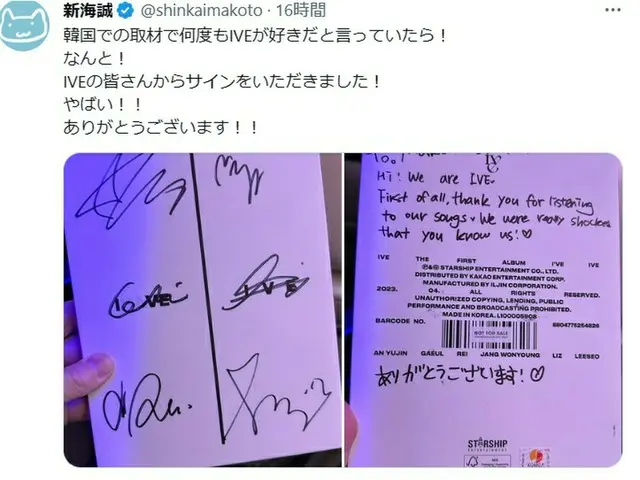 新海誠 @shinkaimakoto・16時間
韓国での取材で何度もIVEが好きだと言っていたら！
なんと！
IVEの皆さんからサインをいただきました！
やばい！！
ありがとうございます！！
IVE
Hi! We are IVE.
First of all, thank you for listening
to our songs♥ We were really shocked
that you know us!♡
IVE THE FIRST ALBUM I'VE IVE
℗&© STARSHIP ENTERTAINMENT CO., LTD.
DISTRIBUTED BY KAKAO ENTERTAINMENT CORP.
MANUFACTURED BY ILJIN CORPORATION.
2023. 04. ALL RIGHTS RESERVED.
UNAUTHORIZED COPYING, LENDING, PUBLIC
PERFORMANCE AND BROADCASTING PROHIBITED.
MADE IN KOREA. L100005908
BARCODE NO. 8804775254826
NOT FOR SALE
AN YUJIN GAEUL REI JANG WONYOUNG LIZ LEESEO
ありがとうございます！♡
STARSHIP
ENTERTAINMENT
FSC MIX